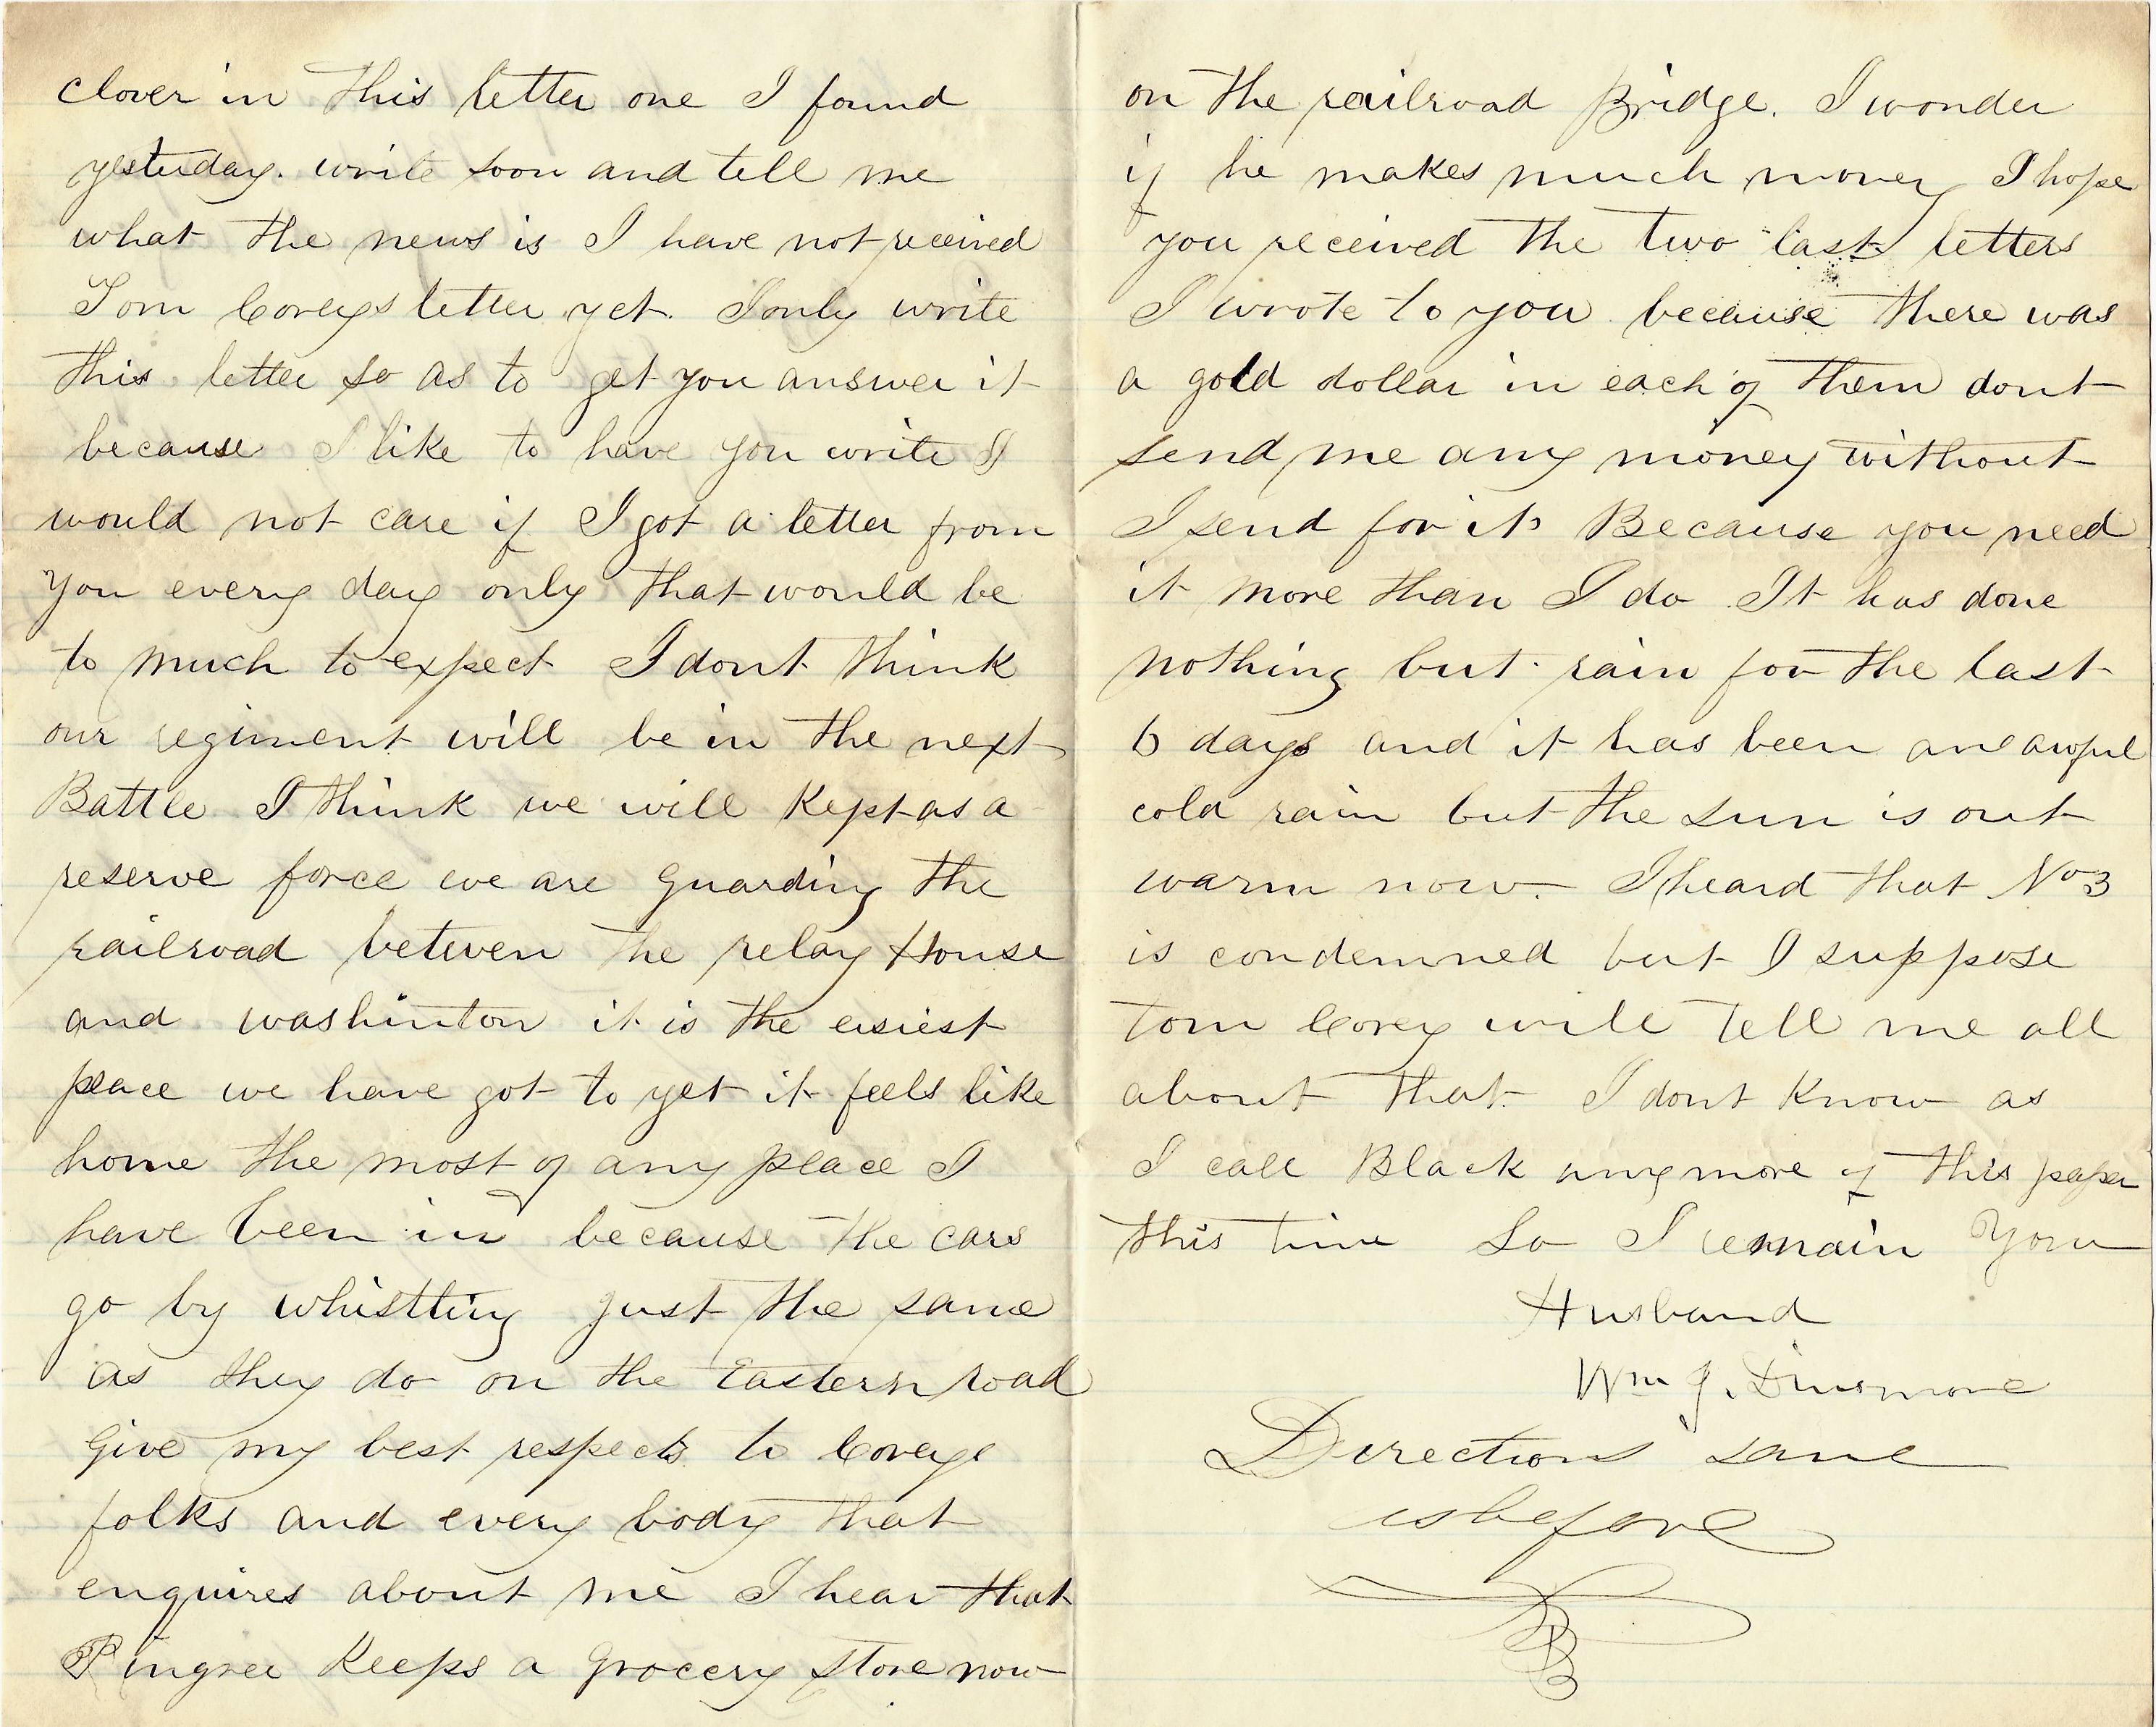 clover in this letter one I found
yesterday. write soon and tell me
what the news is I have not received
Tom Coreys letter yet. I only write
this letter so as to get you answer it
because I like to have you write I
would not care if I got a letter from
you every day only that would be
to much to expect I dont think
our regiment will be in the next
Battle I think we will kept as a
reserve force we are guarding the
railroad between the relay House
and washinton it is the easiest
place we have got to yet it feels like
home the most of any place I
have been in because the cars
go by whistling just the same
as they do on the Eastern road
Give my best respects to Coreys
folks and every body that
enquires about me I hear that
Pingree keeps a grocery store now
on the railroad Bridge. I wonder
if he makes much money I hope
you received the two last letters
I wrote to you because there was
a gold dollar in each of them dont
send me any money without
I send for it Because you need
it more than I do It has done
nothing but rain for the last
6 days and it has been an awful
cold rain but the sun is out
warm now. I heard that No 3
is condemned but I suppose
tom Corey will tell me all
about that. I dont know as
I call Black any more of this paper
this time So I remain Your
Husband
Wm J. Dinsmore
Directions same
as before